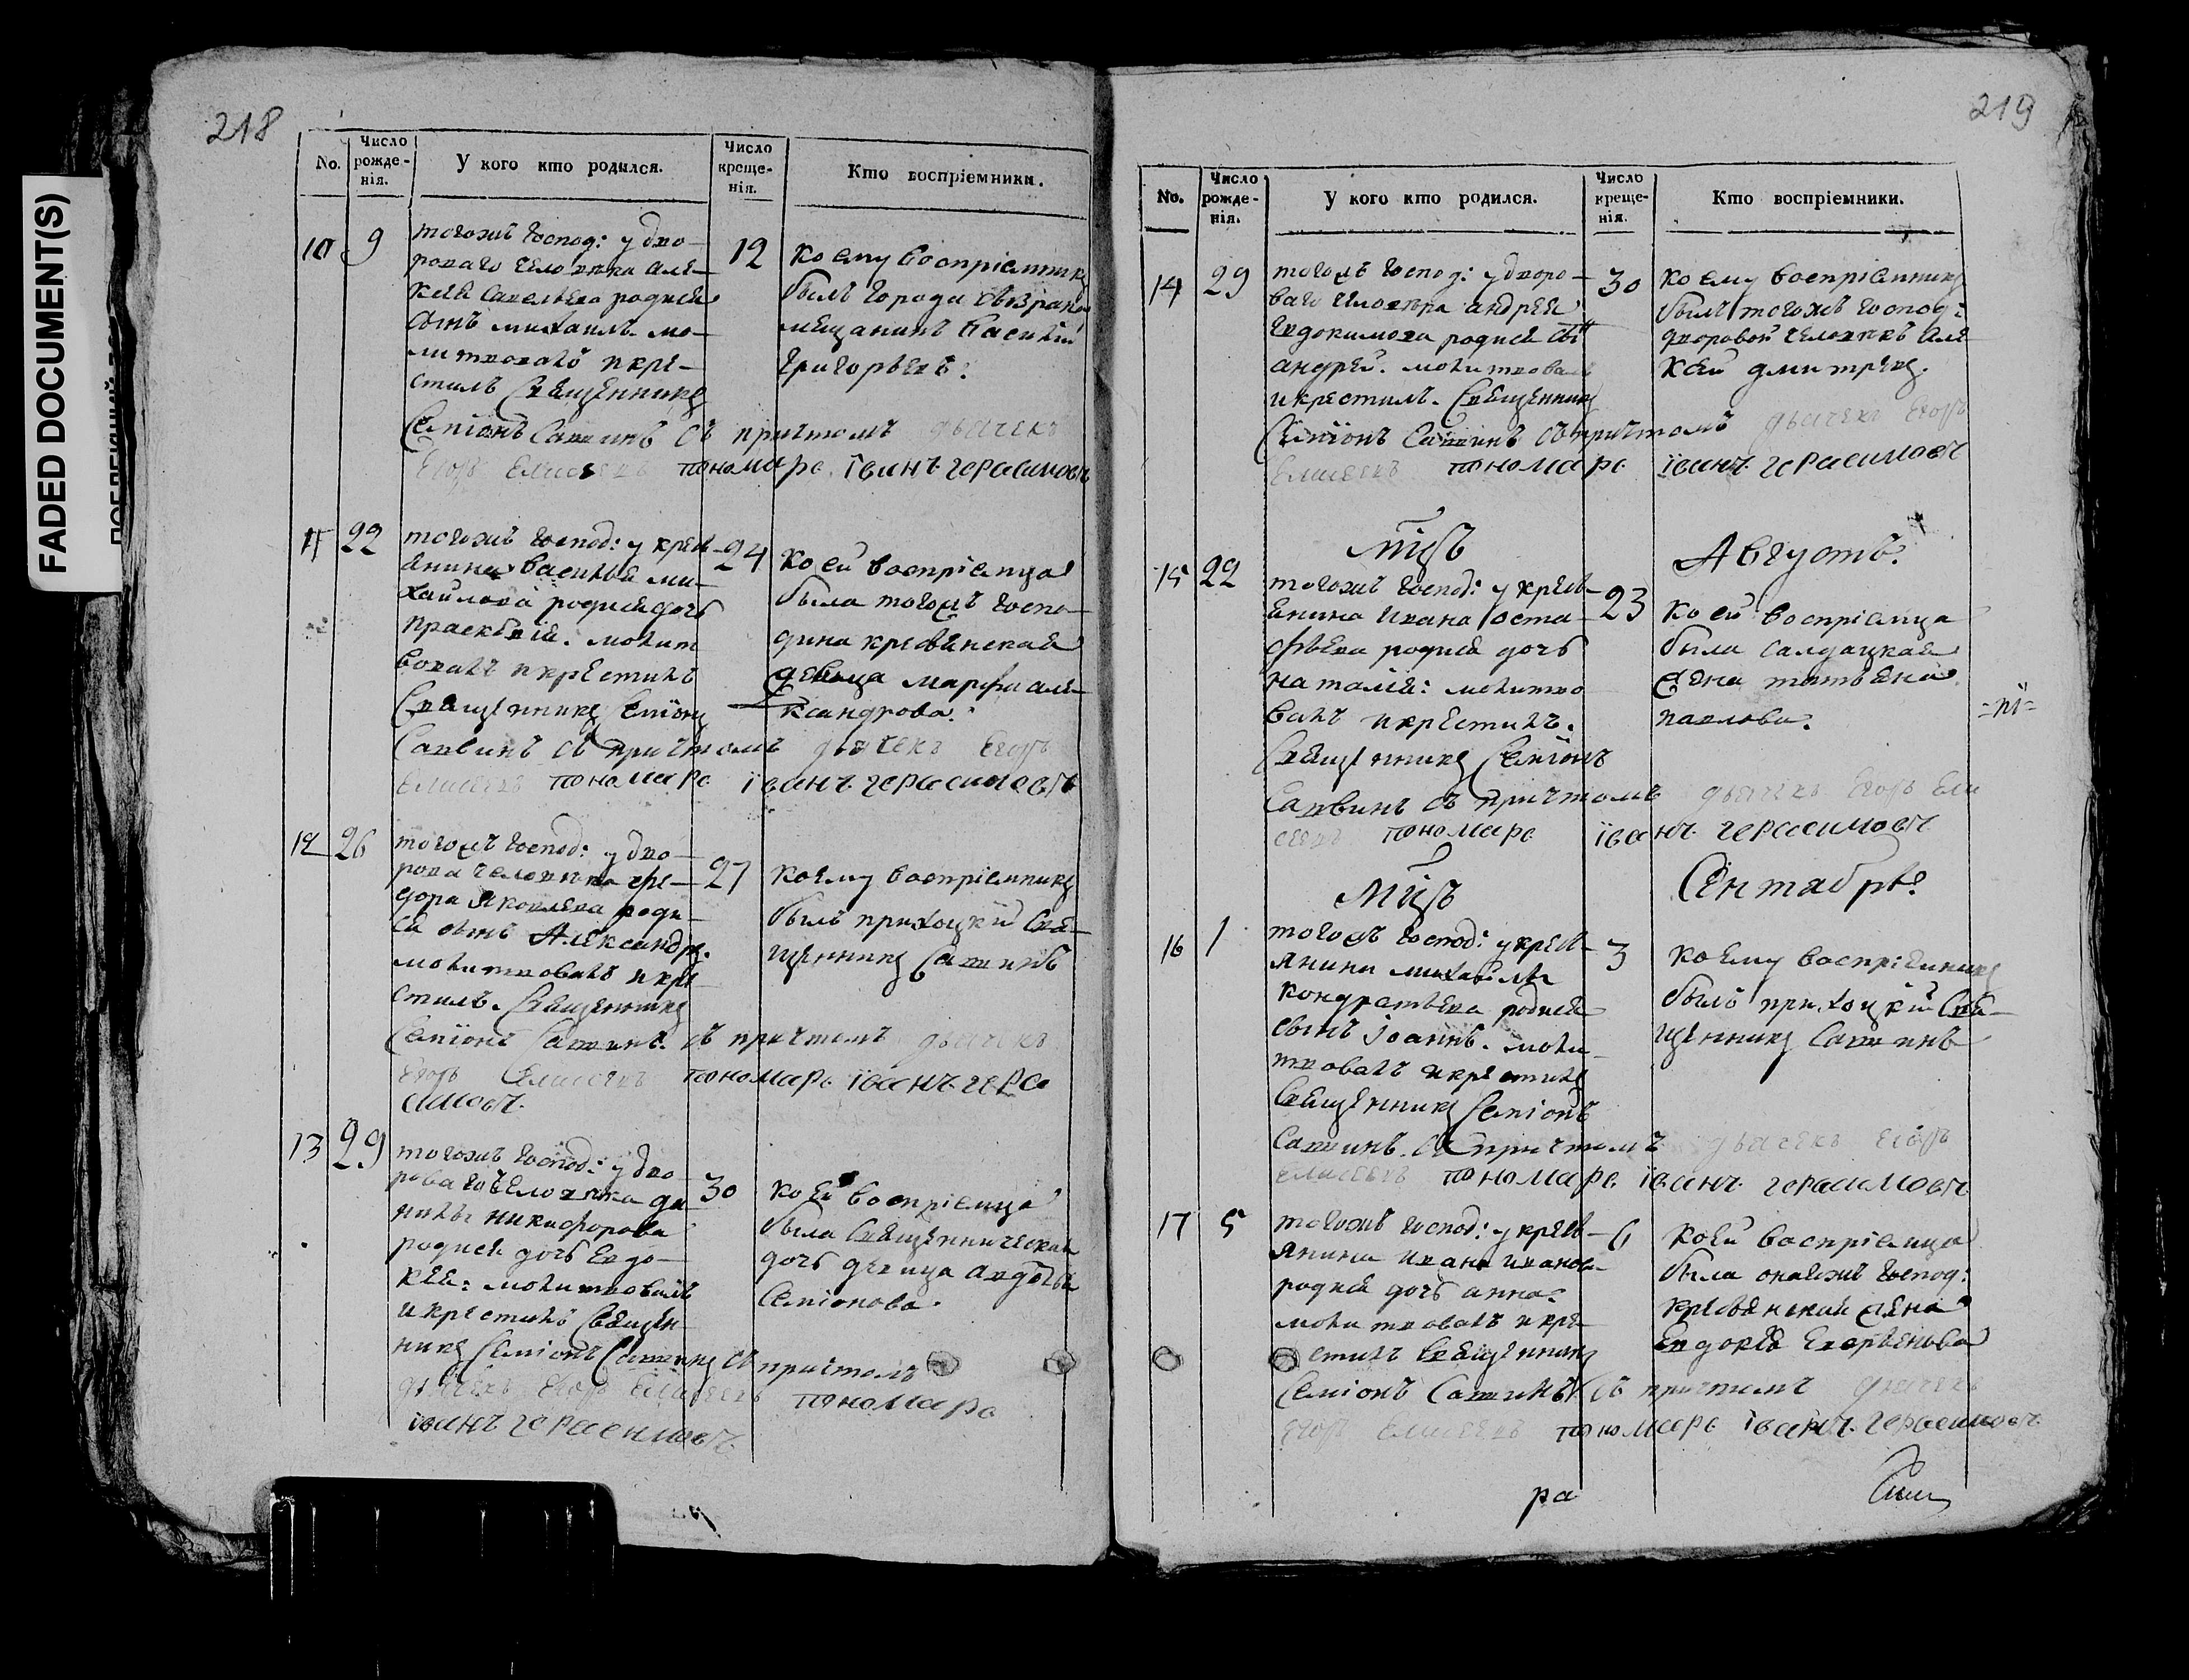 FADED DOCUMENT(S)
218
No.
Число рожде-
нія.
У кого кто родился.
Число креще-
нія.
Кто воспріемники.
10
9
тогожъ господ: у дво-
роваго человѣка але-
ксея савельева родися
сынъ михаилъ. мо-
литвовалъ и кре-
стилъ Священникъ
Семіонъ Саввинъ съ причтомъ дьячекъ
Егоръ Елисеевъ пономарь іванъ герасимовъ
12
коему воспріемникъ
былъ города сызрана
мещанинъ василій
григорьевъ.
11
22
тогожъ господ: у крестъ-
янина василья ми-
хайлова родися дочь
праскевія. молит
вовалъ и крестилъ
Священникъ Семіонъ
Саввинъ съ причтомъ дьячекъ Егоръ
Елисеевъ пономарь іванъ герасимовъ
24
коей воспріемница
была тогожъ госпо-
дина крестьянская
девица марфа але-
ксандрова.
12
26
тогожъ господ: у дво-
рова человѣка фе-
дора Яковлева роди-
ся сынъ Александръ.
молитвовалъ и кре
стилъ. Священникъ
Семіонъ Саввинъ. съ причтомъ дьячекъ
Егоръ Елисеевъ пономарь іванъ гера
симовъ.
27
коему воспріемникъ
былъ прихоцкій свя-
щенникъ Саввинъ
13
29
тогожъ господ: у дво-
роваго человѣка да
нилы никифорова
родися дочь Евдо-
кея: молитвовалъ
и крестилъ Священ-
никъ Семіонъ Саввинъ съ причтомъ
дьячекъ Егоръ Елисеевъ пономарь
іванъ герасимовъ.
30
коей воспріемница
была Священническая
дочь девица авдотья
Семіонова.
219
No.
Число рожде-
нія.
У кого кто родился.
Число креще-
нія.
Кто воспріемники.
14
29
тогожъ господ: у дворо-
ваго человѣка андрея
Евдокимова родися сы
андрей. молитвовалъ
и крестилъ. Священникъ
Семіонъ Саввинъ съ причтомъ дьячекъ Егоръ
Елисеевъ пономарь іванъ герасимовъ
30
коему воспріемникъ
былъ тогожъ господ:
дворовой человѣкъ але
ксей дмитревъ.
мцъ Августъ.
15
22
тогожъ господ: у кресть-
янина ивана оста-
фьева родися дочь
наталія: молитво
валъ и крестилъ.
Священникъ Семіонъ
Саввинъ съ причтомъ дьячекъ Егоръ Ели
сеевъ пономарь іванъ герасимовъ
23
коей воспріемница
была салдацкая
жена татьяна
павлова.
мцъ Сентябрь.
16
1
тогожъ господ: у кресть-
янина михайлы
кондратьева родися
сынъ Іоаннъ. моли-
твовалъ и крестилъ
Священникъ Семіонъ
Саввинъ. съ причтомъ дьячекъ Егоръ
Елисеевъ пономарь іванъ герасимовъ
3
коему воспріемникъ
былъ прихоцкій свя-
щенникъ Саввинъ
17
5
тогожъ господ: у кресть-
янина ивана иванова
родися дочь анна:
молитвовалъ и кре-
стилъ Священникъ
Семіонъ Саввинъ съ причтомъ дьячекъ
Егоръ Елисеевъ пономарь іванъ герасимовъ
6
коей воспріемница
была онагожъ господ:
крестьянская жена
ра